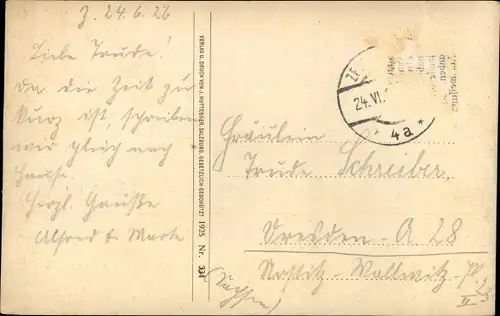 Z. 24.6.26
Liebe Trude!
Da die Zeit zu
kurz ist, schreiben
wir gleich nach
Hause.
Herzl. Grüße
Alfred & Marta
VERLAG U. DRUCK VON J. HUTTEGGER, SALZBURG. GESETZLICH GESCHÜTZT 1925 Nr. 331
24. VI.
* 4a *
Fräulein
Trude Schreiber
Dresden-A 28
Wallwitz-
(Sachsen)
II